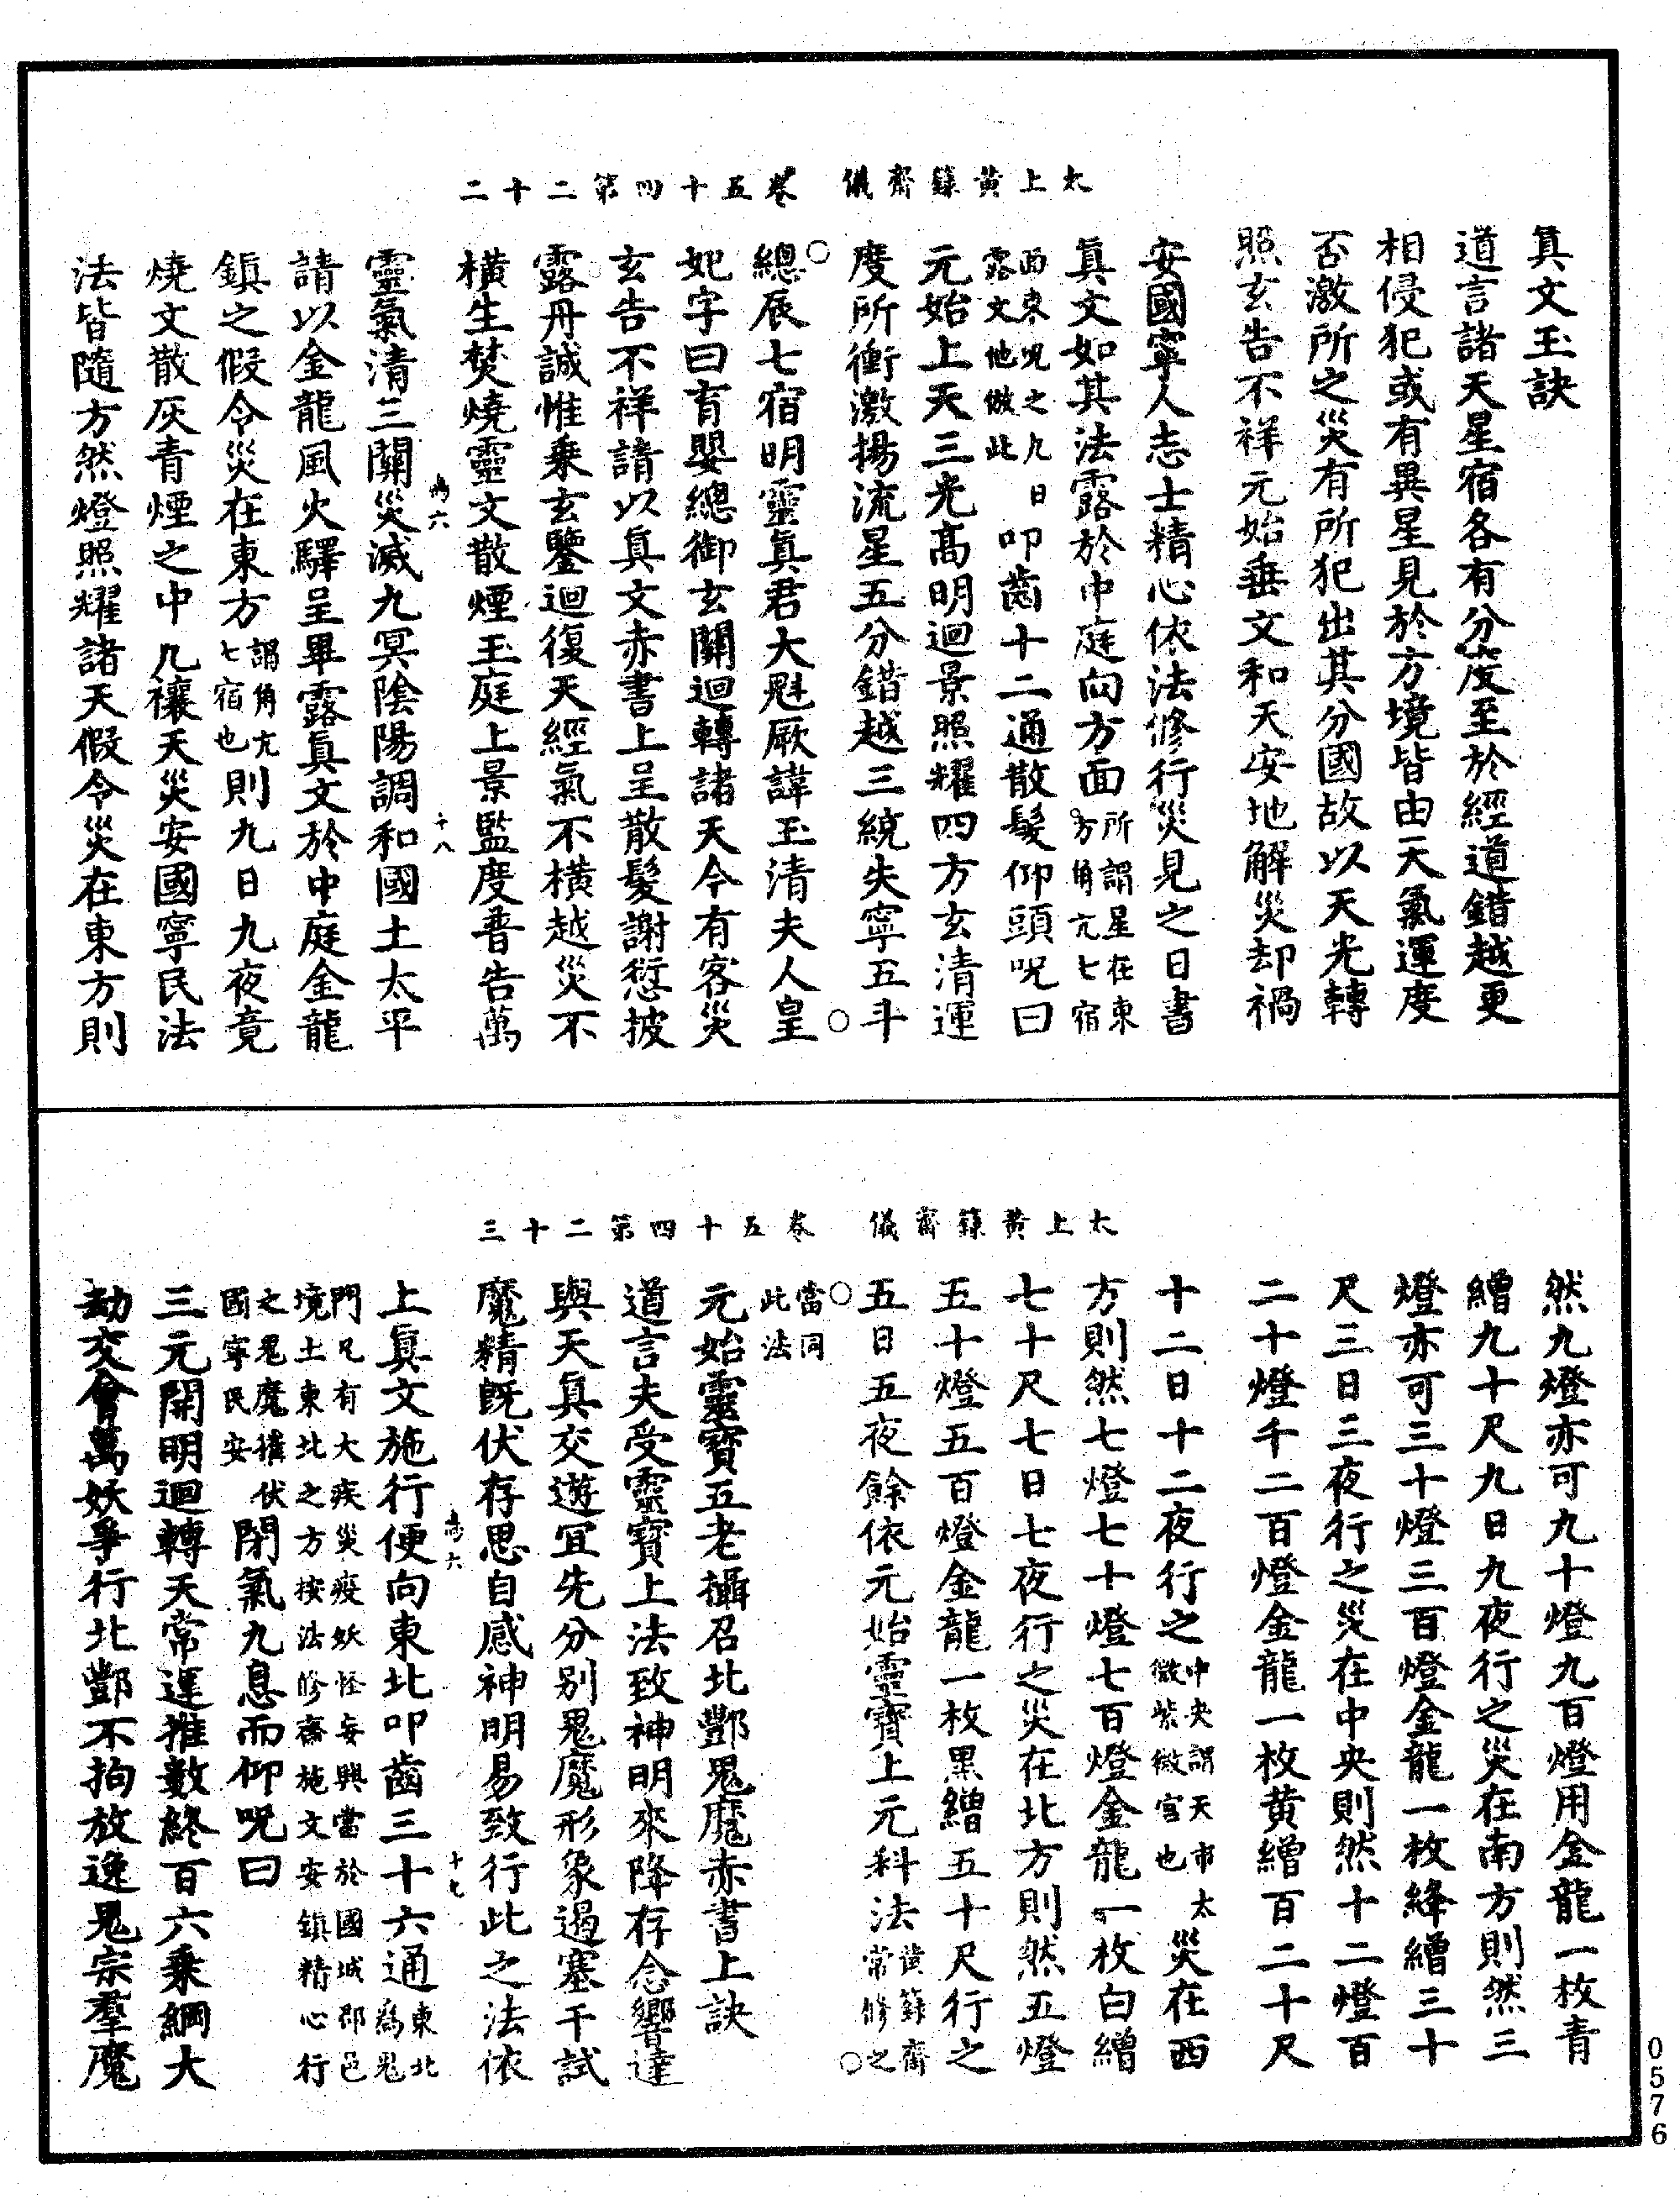 太上黃籙齋儀　卷五十四第二十二
真文玉訣
道言諸天星宿各有分度至於經道錯越更
相侵犯或有異星見於方境皆由天氣運度
否激所之災有所犯出其分國故以天光轉
照玄告不祥元始垂文和天安地解災却禍
安國寧人志士精心依法修行災見之日書
真文如其法露於中庭向方面所謂星在東方角亢七宿
西東呪之九日露文他倣此叩齒十二通散髮仰頭呪曰
元始上天三光高明迴景照耀四方玄清運
度所衝激揚流星五分錯越三統失寧五斗
總辰七宿明靈真君大魁厥諱玉清夫人皇
妃字曰育嬰總御玄關迴轉諸天今有客災
玄告不祥請以真文赤書上呈散髮謝愆披
露丹誠惟乘玄鑒迴復天經氣不橫越災不
橫生焚燒靈文散煙玉庭上景監度普告萬
靈氣清三關災滅九冥陰陽調和國土太平
請以金龍風火驛呈畢露真文於中庭金龍
鎮之假令災在東方謂角亢七宿也則九日九夜竟
燒文散灰青煙之中凡禳天災安國寧民法
法皆隨方然燈照耀諸天假令災在東方則
太上黃籙齋儀　卷五十四第二十三
然九燈亦可九十燈九百燈用金龍一枚青
繒九十尺九日九夜行之災在南方則然三
燈亦可三十燈三百燈金龍一枚絳繒三十
尺三日三夜行之災在中央則然十二燈百
二十燈千二百燈金龍一枚黃繒百二十尺
十二日十二夜行之中央謂天市太微紫微宮也災在西
方則然七燈七十燈七百燈金龍一枚白繒
七十尺七日七夜行之災在北方則然五燈
五十燈五百燈金龍一枚黑繒五十尺行之
五日五夜餘依元始靈寶上元科法黃籙齋常修之
當同此法
元始靈寶五老攝召北酆鬼魔赤書上訣
道言夫受靈寶上法致神明來降存念響達
與天真交遊宜先分別鬼魔形象遏塞干試
魔精既伏存思自感神明易致行此之法依
上真文施行便向東北叩齒三十六通東北為鬼
門凡有大疾災疫妖怪妄興當於國城郡邑境土東北之方按法修齋施文安鎮精心行
之鬼魔攝伏國寧民安閉氣九息而仰呪曰
三元開明迴轉天常運推數終百六乘綱大
劫交會萬妖爭行北酆不拘放逸鬼宗羣魔
0576